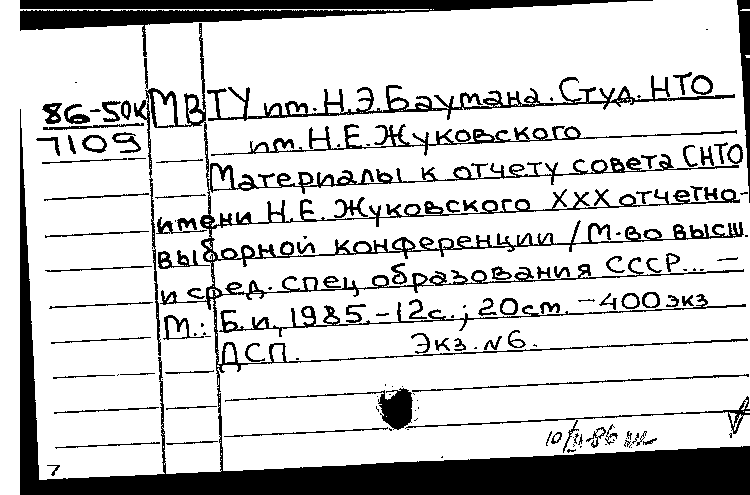 86-50к МВТУ им. Н.Э.Баумана. Студ. НТО
7109 им. Н.Е.Жуковского
Материалы к отчету совета СНТО
имени Н.Е.Жуковского XXX отчетно-
выборной конференции / М-во высш.
и сред. спец образования СССР... –
М.: Б.и., 1985. – 12с.; 20см. – 400 экз
ДСП. Экз. №6.
10/II-86
7